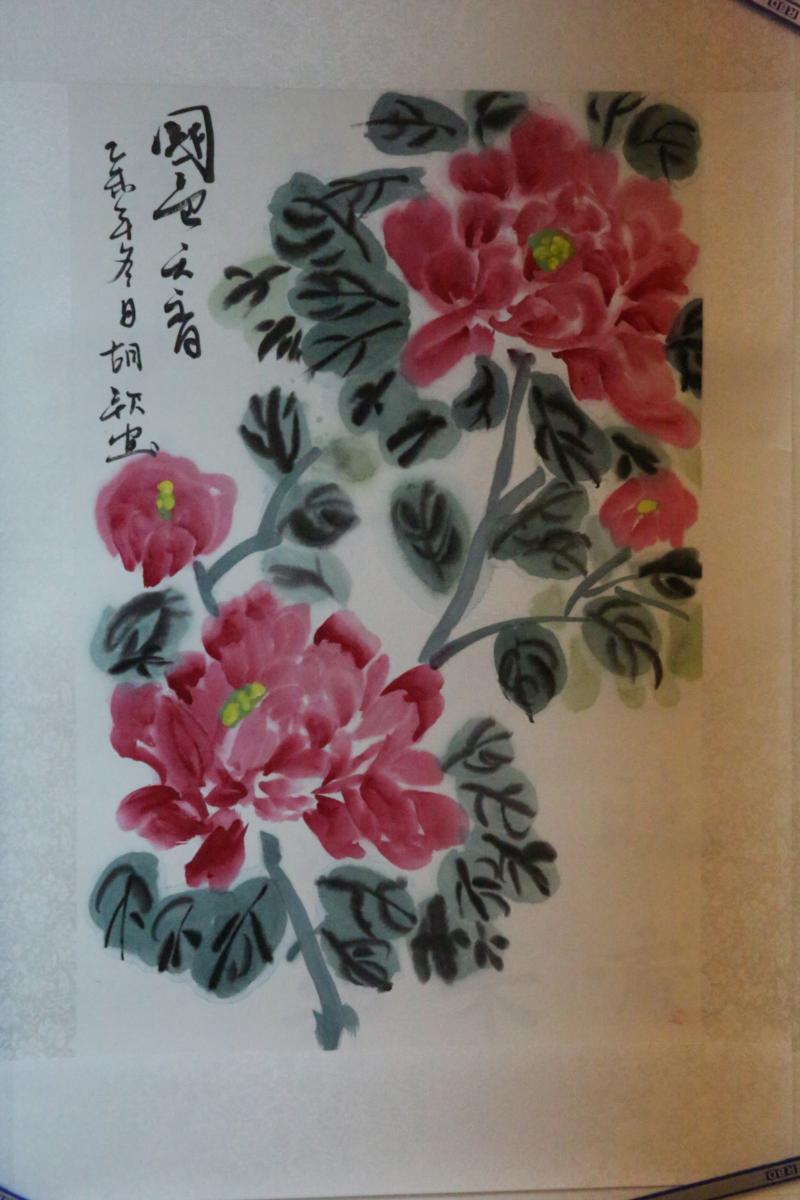 國色天香
乙未年冬日胡歌画